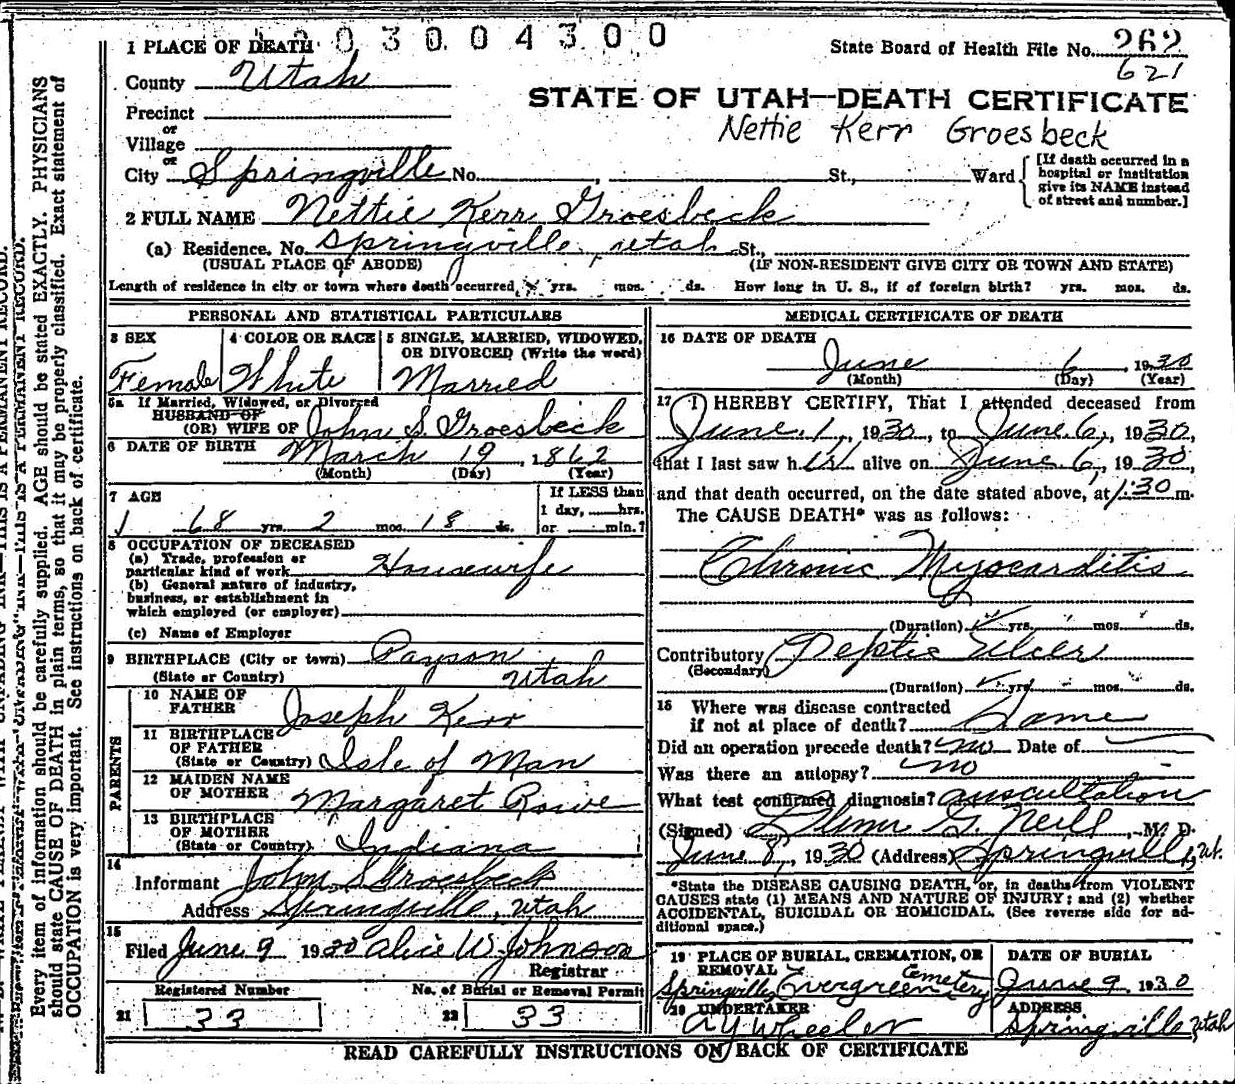 0030 04300
1 PLACE OF DEATH
State Board of Health File No. 262
621
County Utah
STATE OF UTAH—DEATH CERTIFICATE
Precinct
Nettie Kerr Groesbeck
or
Village
or
City Springville No. , St., Ward
[If death occurred in a
hospital or institution
give its NAME instead
of street and number.]
2 FULL NAME Nettie Kerr Groesbeck
(a) Residence. No. Springville, Utah St.,
(USUAL PLACE OF ABODE) (IF NON-RESIDENT GIVE CITY OR TOWN AND STATE)
Length of residence in city or town where death occurred yrs. mos. ds. How long in U. S., if of foreign birth? yrs. mos. ds.
PERSONAL AND STATISTICAL PARTICULARS
3 SEX
Female
4 COLOR OR RACE
White
5 SINGLE, MARRIED, WIDOWED,
OR DIVORCED (Write the word)
Married
5a If Married, Widowed, or Divorced
HUSBAND OF
(OR) WIFE OF John S. Groesbeck
6 DATE OF BIRTH March 19, 1862
(Month) (Day) (Year)
7 AGE
68 yrs. 2 mos. 18 ds.
If LESS than
1 day, hrs.
or min.?
8 OCCUPATION OF DECEASED
(a) Trade, profession or
particular kind of work Housewife
(b) General nature of industry,
business, or establishment in
which employed (or employer)
(c) Name of Employer
9 BIRTHPLACE (City or town) Payson
(State or Country) Utah
PARENTS
10 NAME OF
FATHER Joseph Kerr
11 BIRTHPLACE
OF FATHER
(State or Country) Isle of Man
12 MAIDEN NAME
OF MOTHER Margaret Rowe
13 BIRTHPLACE
OF MOTHER
(State or Country) Indiana
14
Informant John S Groesbeck
Address Springville, Utah
15
Filed June 9 1930 Alice W. Johnson
Registrar
Registered Number No. of Burial or Removal Permit
21 33 22 33
MEDICAL CERTIFICATE OF DEATH
16 DATE OF DEATH
June 6, 1930
(Month) (Day) (Year)
17 I HEREBY CERTIFY, That I attended deceased from
June 1, 1930, to June 6, 1930,
that I last saw her alive on June 6, 1930,
and that death occurred, on the date stated above, at 1:30 m.
The CAUSE DEATH* was as follows:
Chronic Myocarditis
(Duration) yrs. mos. ds.
Contributory Peptic Ulcer
(Secondary)
(Duration) yrs. mos. ds.
18 Where was disease contracted
if not at place of death? Same
Did an operation precede death? no Date of
Was there an autopsy? no
What test confirmed diagnosis? auscultation
(Signed) G. Neill, M. D.
June 8, 1930 (Address) Springville, Ut.
*State the DISEASE CAUSING DEATH, or, in deaths from VIOLENT
CAUSES state (1) MEANS AND NATURE OF INJURY; and (2) whether
ACCIDENTAL, SUICIDAL OR HOMICIDAL. (See reverse side for ad-
ditional space.)
19 PLACE OF BURIAL, CREMATION, OR
REMOVAL
Springville Evergreen Cemetery
DATE OF BURIAL
June 9, 1930
20 UNDERTAKER
A Y Wheeler
ADDRESS
Springville, Utah
READ CAREFULLY INSTRUCTIONS ON BACK OF CERTIFICATE
Every item of information should be carefully supplied. AGE should be stated EXACTLY. PHYSICIANS
should state CAUSE OF DEATH in plain terms, so that it may be properly classified. Exact statement of
OCCUPATION is very important. See instructions on back of certificate.